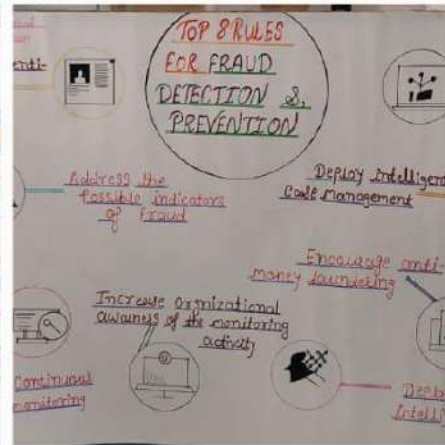 TOP 8 RULES
FOR FRAUD
DETECTION &
PREVENTION
enti-
Address the
Possible indicators
of Fraud
Deploy Intelligen
Case Management
Encourage anti-
money laundering
Increase Organizational
awarness of the monitoring
activity
Continuous
monitoring
Deplo
Intellig